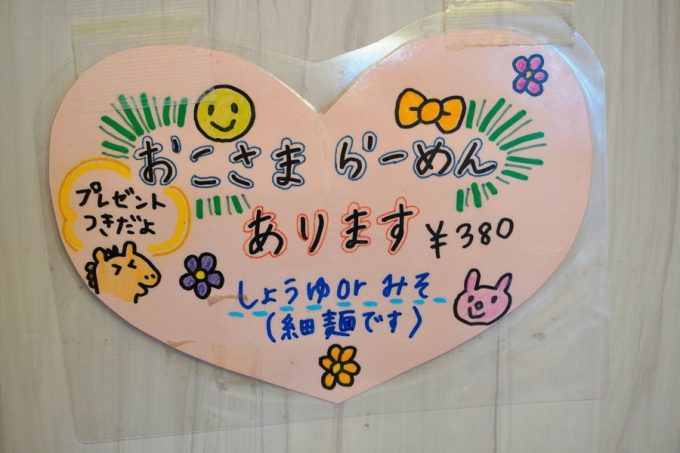 おこさま らーめん
プレゼント
つきだよ
あります ¥380
しょうゆ or みそ
(細麺です)